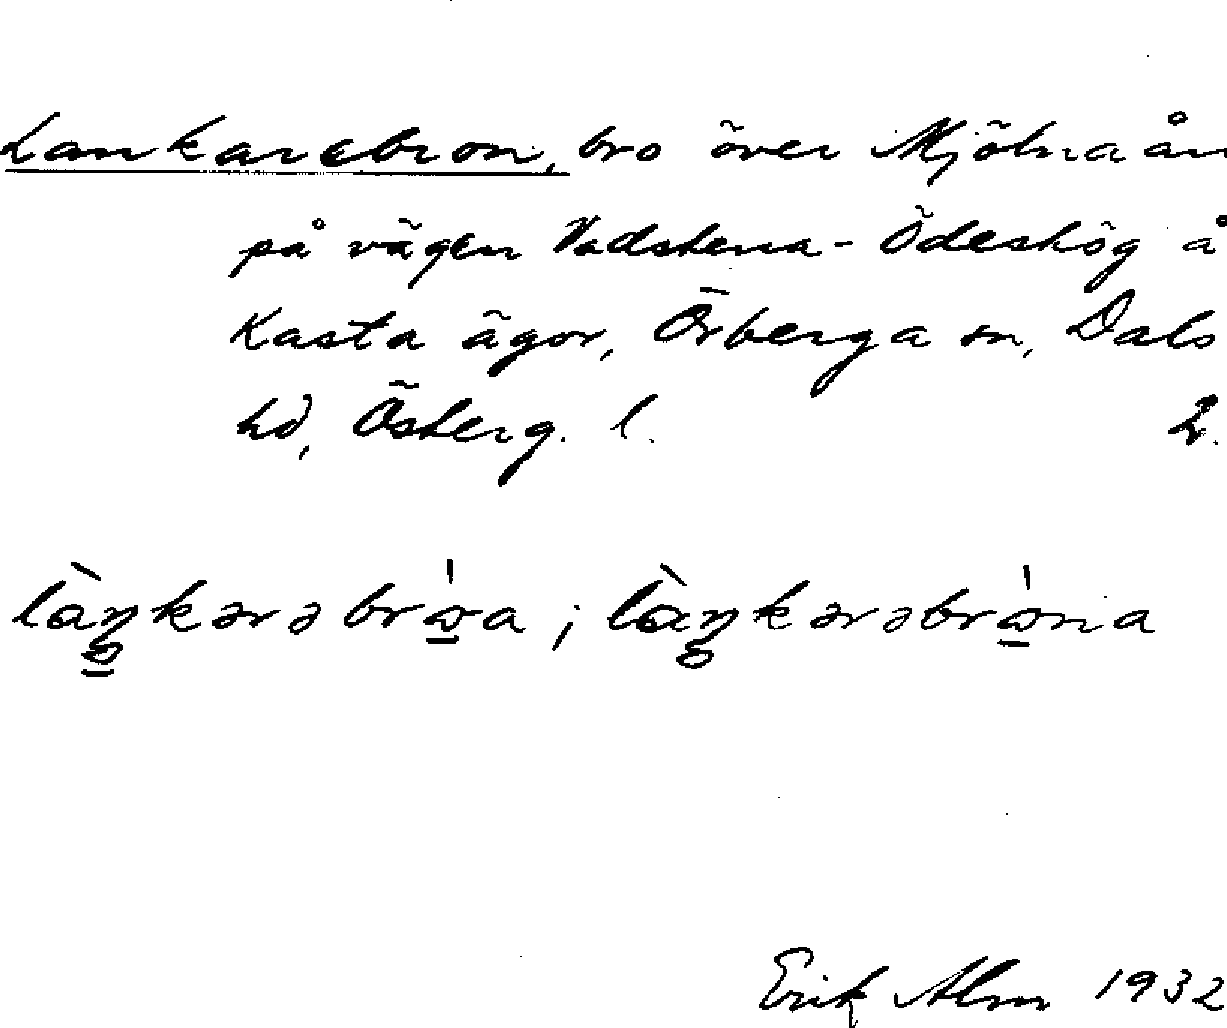 Lankarebron, bro över Mjölnaån
på vägen Vadstena - Ödeshög å
Kasta ägor, Örberga sn, Dals
hd, Österg. l. 2.
làŋkərəbrɷ̀a ; làŋkərəbrɷ̀na
Erik Alm 1932